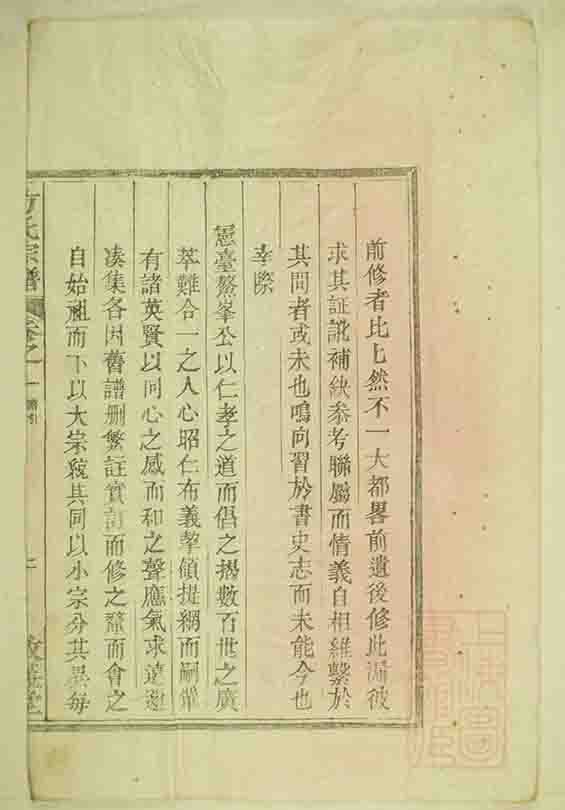 前修者比比然不一大都畧前遺後修此漏彼
求其証訛補缺叅考聯屬而情義自相維繫於
其間者或未也鳴向習於書史志而未能今也
幸際
憲臺鰲峯公以仁孝之道而倡之摺數百世之廣
萃難合一之人心昭仁布義挈領提綱而嗣
有諸英賢以同心之感而和之聲應氣求遠邇
凑集各因舊譜刪繁註實訂而修之彚而會之
自始祖而下以大宗統其同以小宗分其異每
方氏宗譜 卷之一 譜引 敦
上海圖書館藏